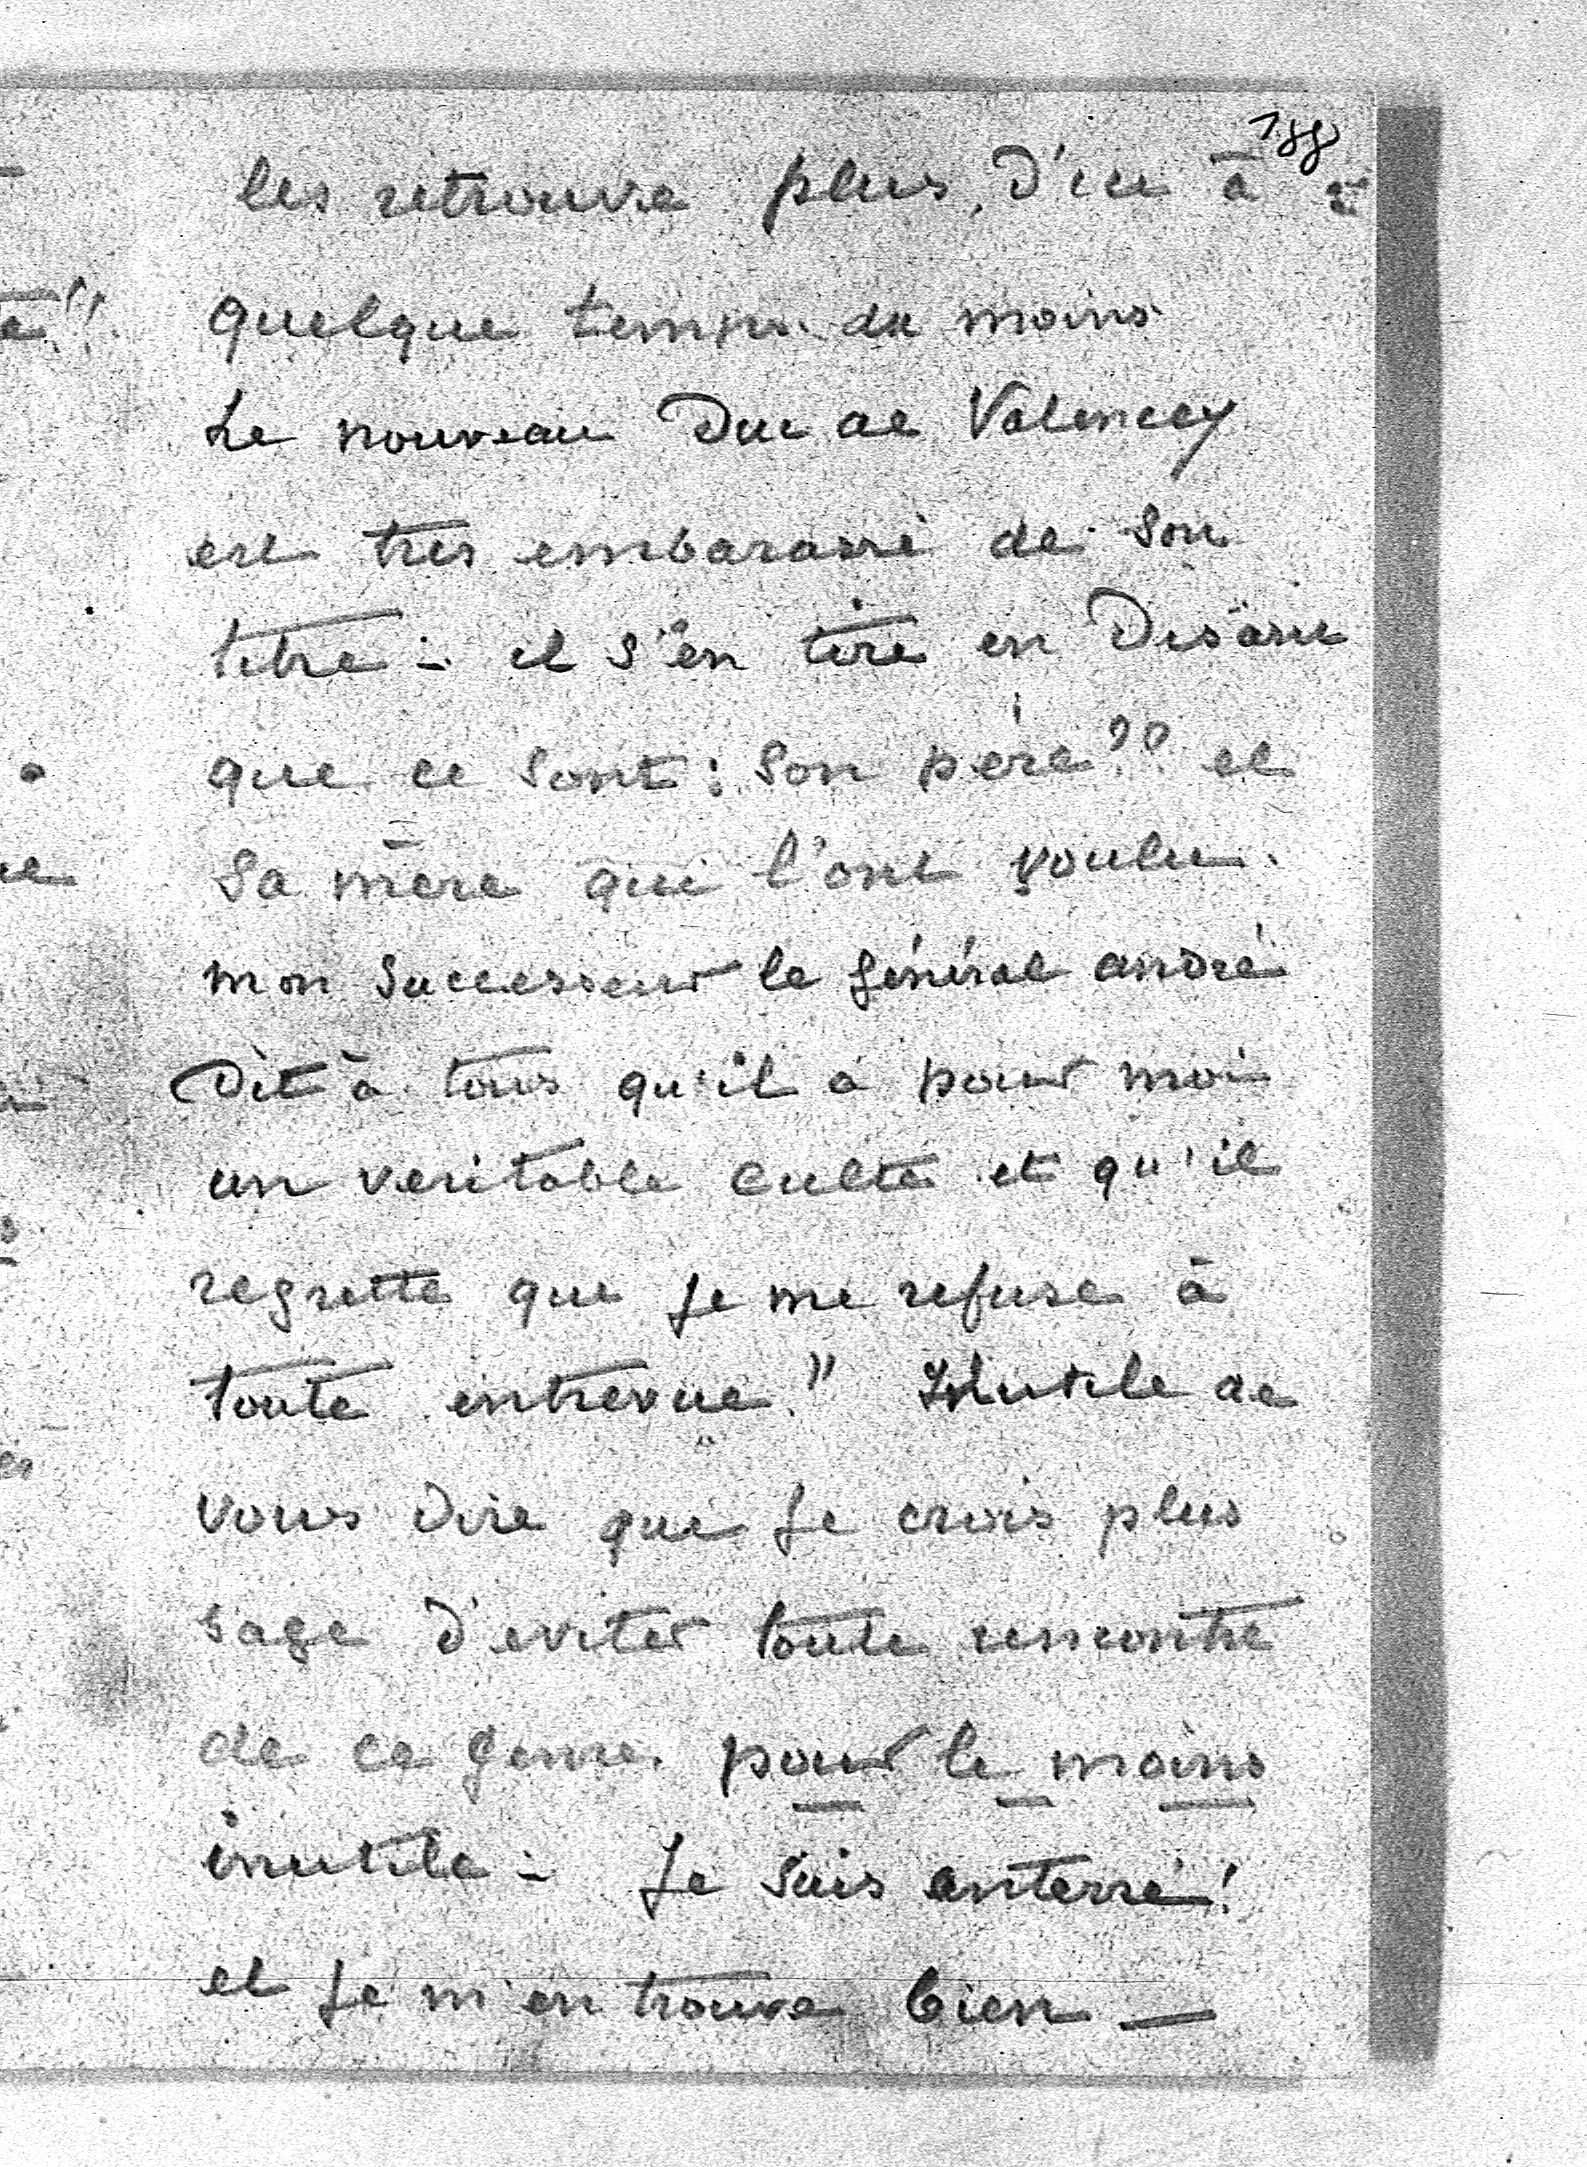 188
les retrouve plus, d'ici à
quelque temps du moins
Le nouveau Duc de Valencey
est très embarassé de son
titre - il s'en tire en disant
que ce sont : son père ?? et
sa mère qui l'ont voulu.
mon successeur le général andré
dit à tous qu'il a pour moi
un veritable culte et qu'il
regrette que je me refuse à
toute entrevue." Inutile de
vous dire que je crois plus
sage d'eviter toute rencontre
de ce genre pour le moins
inutile - Je suis enterré !
et je m'en trouve bien —